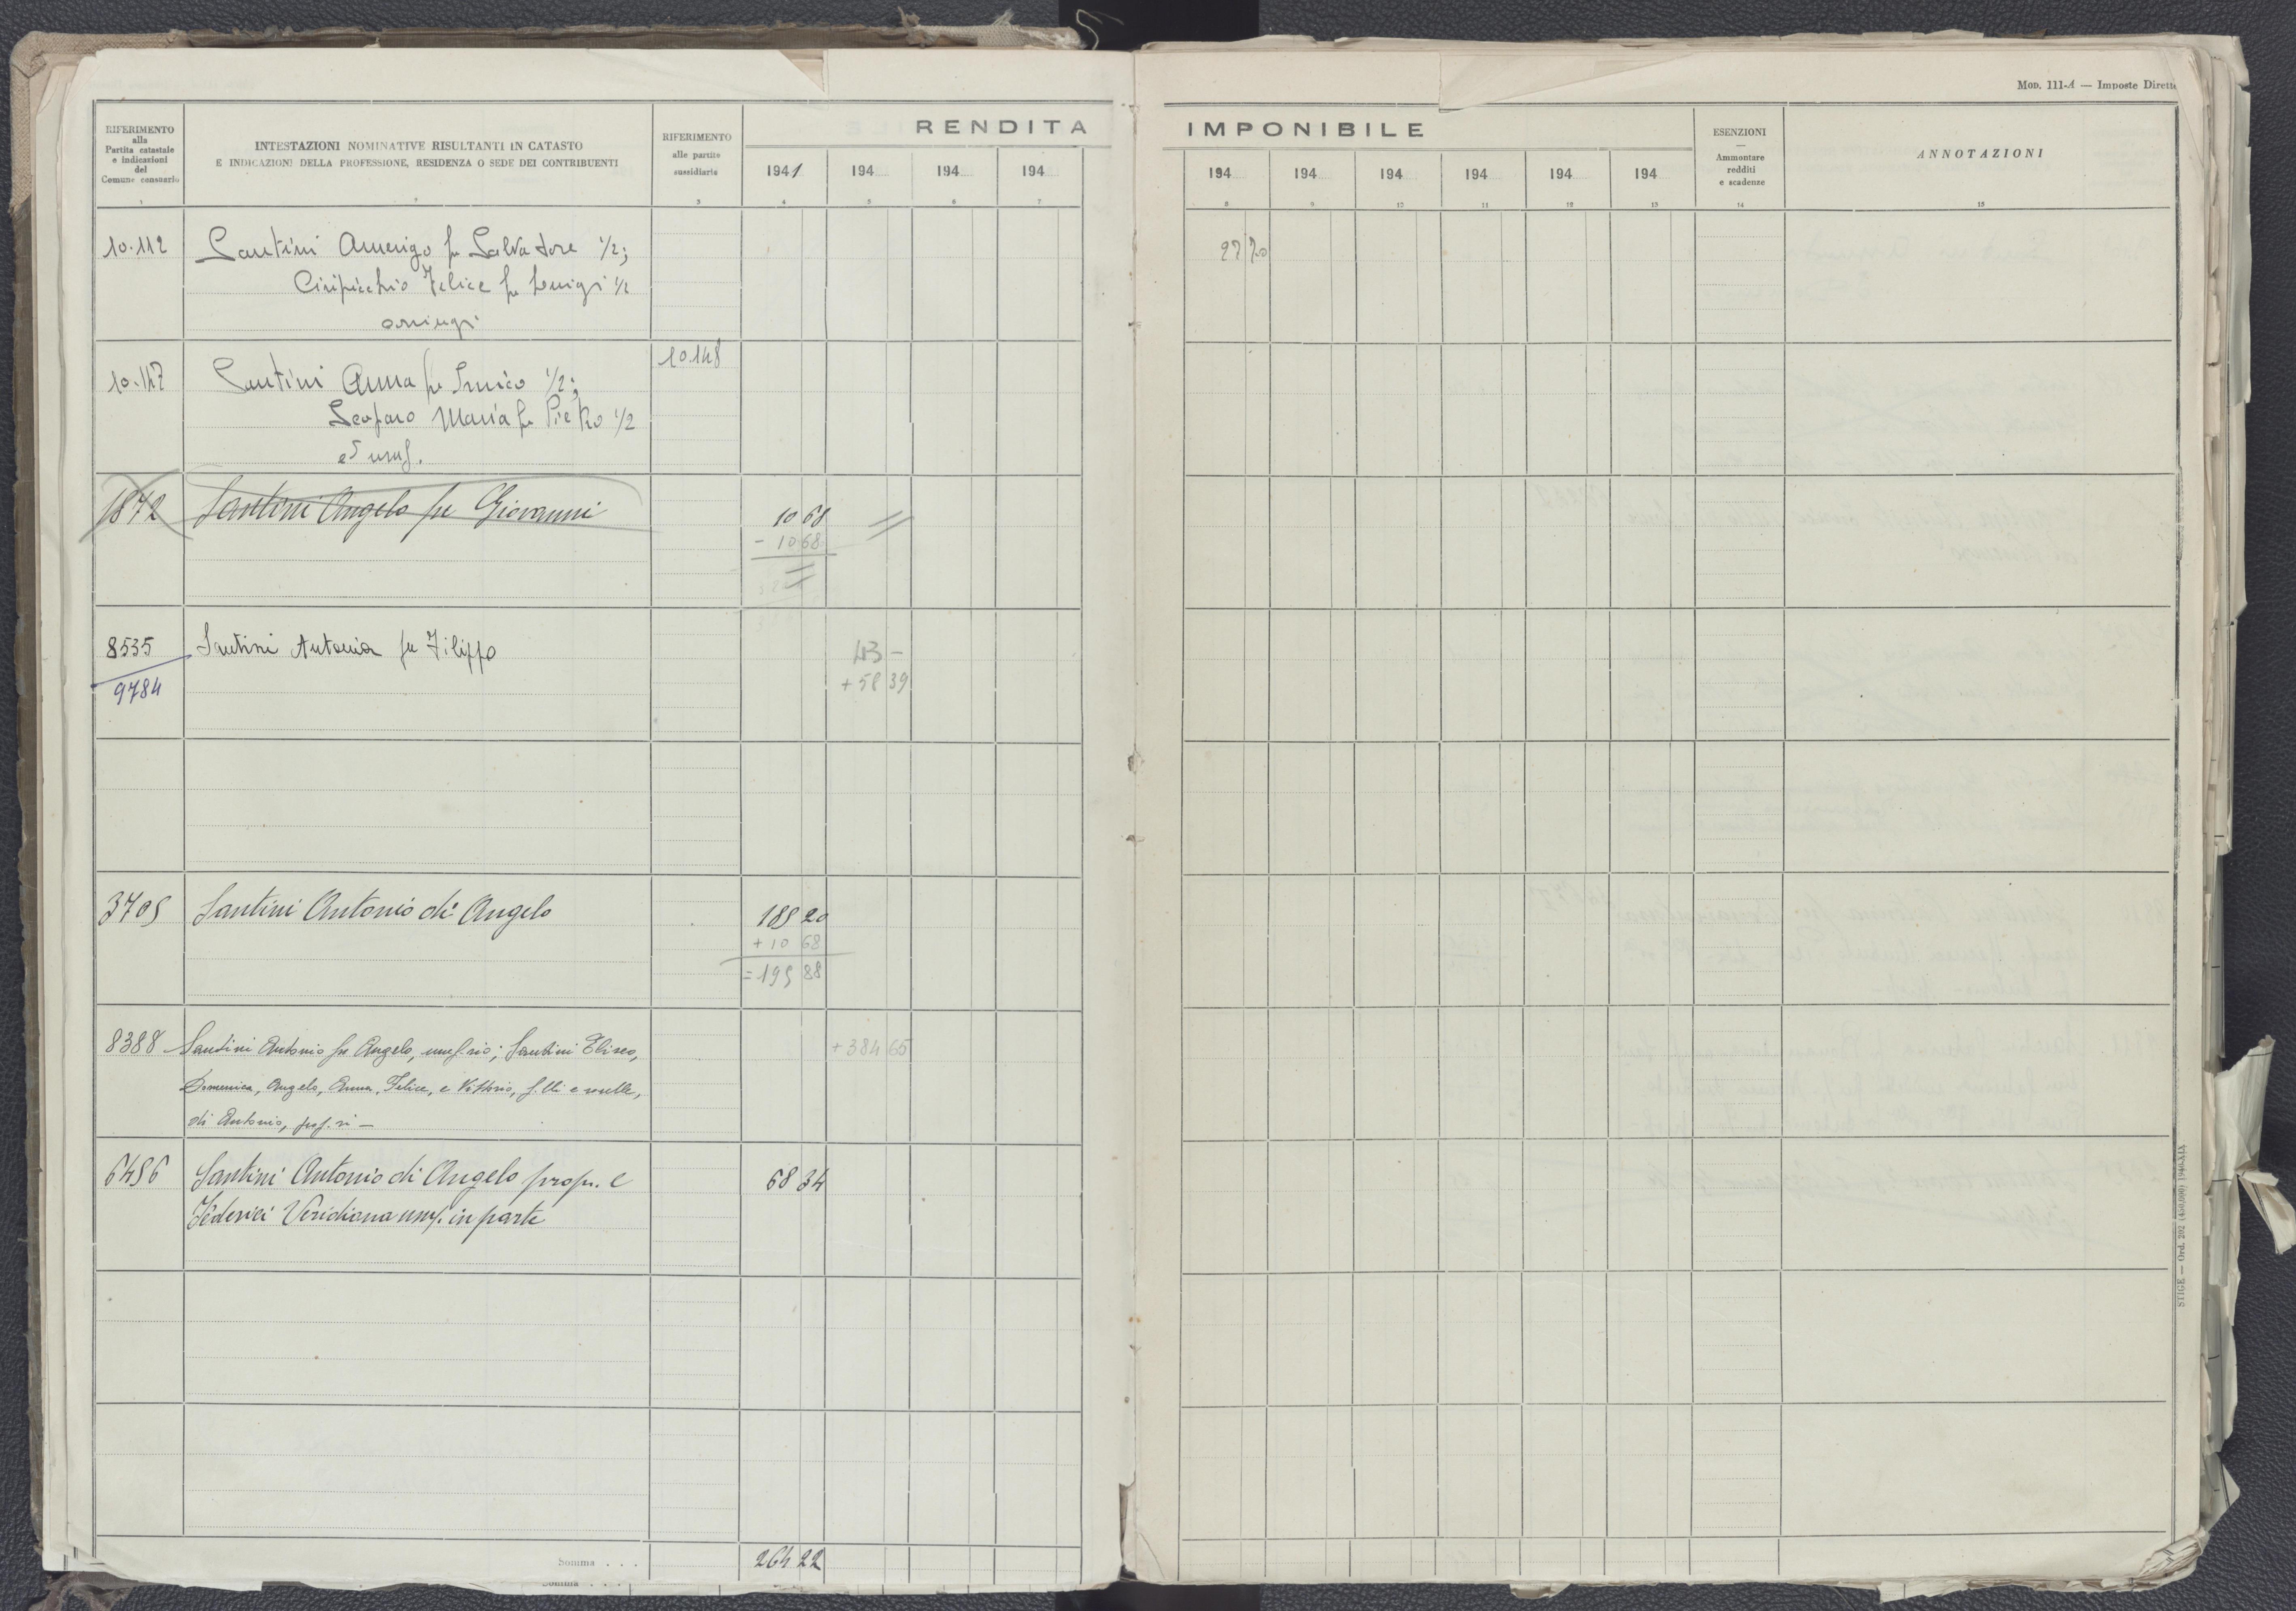 Mod. 111-A — Imposte Dirette
RIFERIMENTO
alla
Partita catastale
e indicazioni
del
Comune censuario
INTESTAZIONI NOMINATIVE RISULTANTI IN CATASTO
E INDICAZIONI DELLA PROFESSIONE, RESIDENZA O SEDE DEI CONTRIBUENTI
RIFERIMENTO
alle partite
sussidiarie
RENDITA IMPONIBILE
1941 194 194 194 194 194 194 194 194 194
ESENZIONI
—
Ammontare
redditi
e scadenze
ANNOTAZIONI
1 2 3 4 5 6 7 8 9 10 11 12 13 14 15
10.112 Santini Amerigo fu Salvatore 1/2;
Ciripicchio Felice fu Luigi 1/2
coniugi
27 70
10.147 Santini Anna fu 1/2;
Maria fu Pietro 1/2
ed usuf.
10.148
1872 Santini Angelo fu Giovanni
10 68
- 10 68
8535 Santini Antonia fu Filippo
9784
43 -
+ 58 39
3705 Santini Antonio di Angelo
185 20
+ 10 68
= 195 88
8388 Santini Antonio fu Angelo, usuf.rio; Santini Eliseo,
Domenica, Angelo, Anna, Felice, e Vittorio, f.lli e sorelle,
di Antonio, prop.ri —
+ 384 65
6456 Santini Antonio di Angelo propr. e
Federici Veridiana usuf. in parte
68 34
Somma . . .
264 22
Somma . . .
STIGE — Ord. 202 (450.000) 1940-XIX